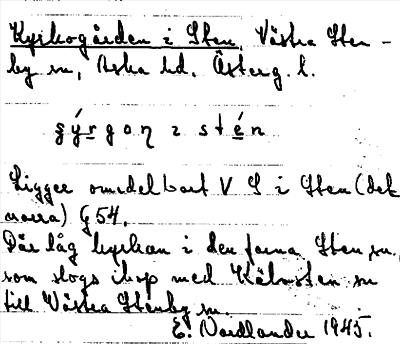 Kyrkogården i Sten, Västra Sten-
by sn, Aska hd. Österg. l.
ʂy̌rgoɳ ɪ stén
Ligger omedelbart V S i Sten (det
norra) G 54.
Där låg kyrkan i den forna Sten sn,
som slogs ihop med Kälvsten sn
till Västra Stenby sn.
E. Nordlander 1945.